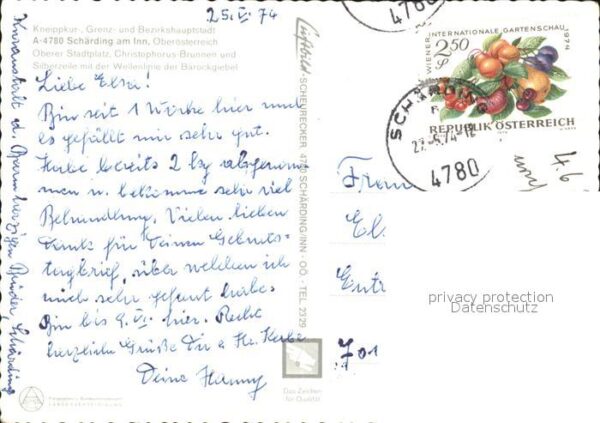 25.V. 74
Kneippkur-, Grenz- und Bezirkshauptstadt
A-4780 Schärding am Inn, Oberösterreich
Oberer Stadtplatz, Christophorus-Brunnen und
Silberzeile mit der Wellenlinie der Barockgiebel
Liebe Elsa!
Bin seit 1 Woche hier und
es gefällt mir sehr gut.
Habe bereits 2 kg abgenom
men u. bekomme sehr viel
Behandlung. Vielen lieben
Dank für Deinen Geburts-
tagbrief, über welchen ich
mich sehr gefreut habe.
Bin bis 9. VI. hier. Recht
herzliche Grüße Dir u. Fr.
Deine Hanny
Kuranstalt d. Barmherzigen Brüder, Schärding
Luftbild-SCHEURECKER 4780 SCHÄRDING/INN - OÖ - TEL 2329
Das Zeichen
für Qualität
4780
WIENER INTERNATIONALE GARTENSCHAU 1974
2.50
S
REPUBLIK ÖSTERREICH
SCHÄRDING
27.-5.74-12
4780
4.6
Frau
El
Entr
701
privacy protection
Datenschutz